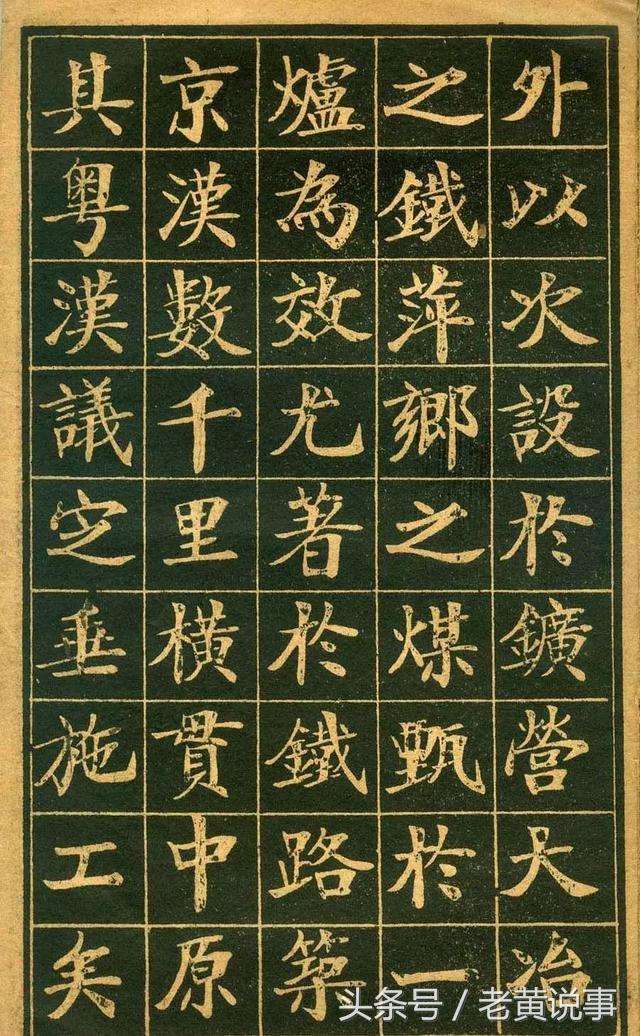 外以次設於鑛營大冶
之鐵萍鄉之煤甄於一
爐為效尤著於鐵路築
京漢數千里橫貫中原
其粵漢議定垂施工矣
头条号 / 老黄说事